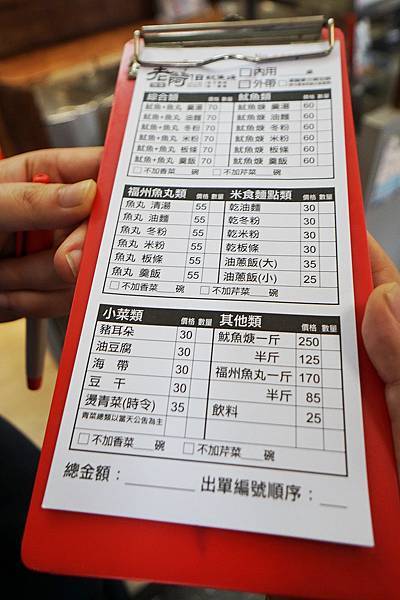 老蔣 1日魷魚焿 □內用 桌
□外帶
綜合類 價格 數量
魷魚+魚丸 羹湯 70
魷魚+魚丸 油麵 70
魷魚+魚丸 冬粉 70
魷魚+魚丸 米粉 70
魷魚+魚丸 板條 70
魷魚+魚丸 羹飯 70
魷魚類 價格 數量
魷魚焿 羹湯 60
魷魚焿 油麵 60
魷魚焿 冬粉 60
魷魚焿 米粉 60
魷魚焿 板條 60
魷魚焿 羹飯 60
□不加香菜___碗 □不加芹菜___碗
福州魚丸類 價格 數量
魚丸 清湯 55
魚丸 油麵 55
魚丸 冬粉 55
魚丸 米粉 55
魚丸 板條 55
魚丸 羹飯 55
米食麵點類 價格 數量
乾油麵 30
乾冬粉 30
乾米粉 30
乾板條 30
油蔥飯(大) 35
油蔥飯(小) 25
□不加香菜___碗 □不加芹菜___碗
小菜類 價格 數量
豬耳朵 30
油豆腐 30
海 帶 30
豆 干 30
燙青菜(時令) 35
青菜總類以當天公告為主
其他類 價格 數量
魷魚焿一斤 250
半斤 125
福州魚丸一斤 170
半斤 85
飲料 25
□不加香菜___碗 □不加芹菜___碗
總金額：________ 出單編號順序：___